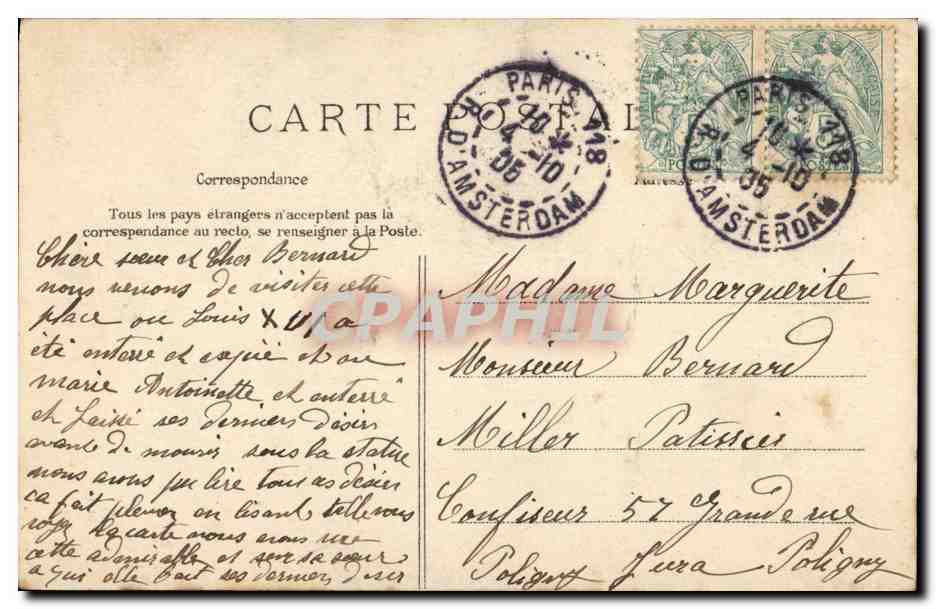 CARTE POSTALE
PARIS 118
10
4 -10
05
R. D'AMSTERDAM
PARIS 118
4 -10
05
R. D'AMSTERDAM
Correspondance
Tous les pays étrangers n'acceptent pas la
correspondance au recto, se renseigner à la Poste.
Chère sœur et Cher Bernard
nous venons de visiter cette
place ou Louis X a
été enterré et et ou
marie Antoinette et enterré
et laissé ses derniers désirs
avante de mourir sous la statue
nous avons pu lire tous ces désir
ca fait pleurer en lisant telle vous
la carte nous avons vue
cette admirable et sur sa sœur
a qui elle fait ses dernier désir
Madame Marguerite
Monsieur Bernard
Miller Patissier
Confiseur 57 Grande rue
Poligny Jura Poligny
CPAPHIL